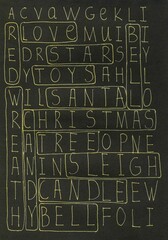 A C V A W G E K L I
R L O V E M U I B I
E D R S T A R S E Y
D Y T O Y S A H L L
W I L S A N T A L O
R C H R I S T M A S
E A T R E E O P N E
A N I N S L E I G H
T D C A N D L E E W
H Y B E L L F O L I